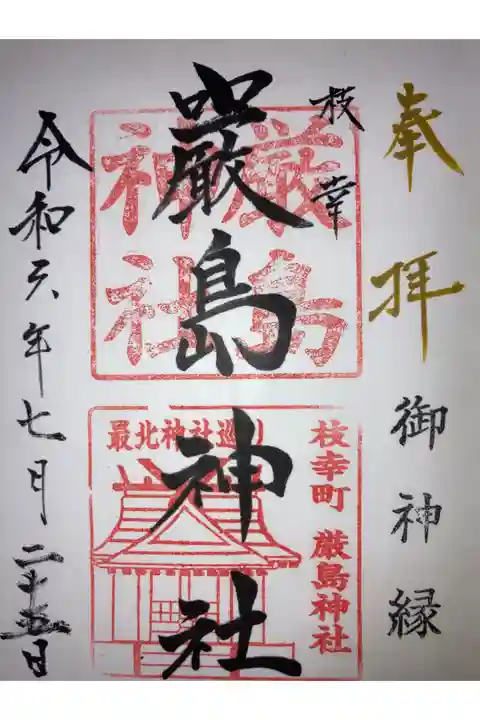 奉拝
御神縁
枝幸
巖島神社
厳島
神社
最北神社巡り
枝幸町 厳島神社
令和六年七月二十五日